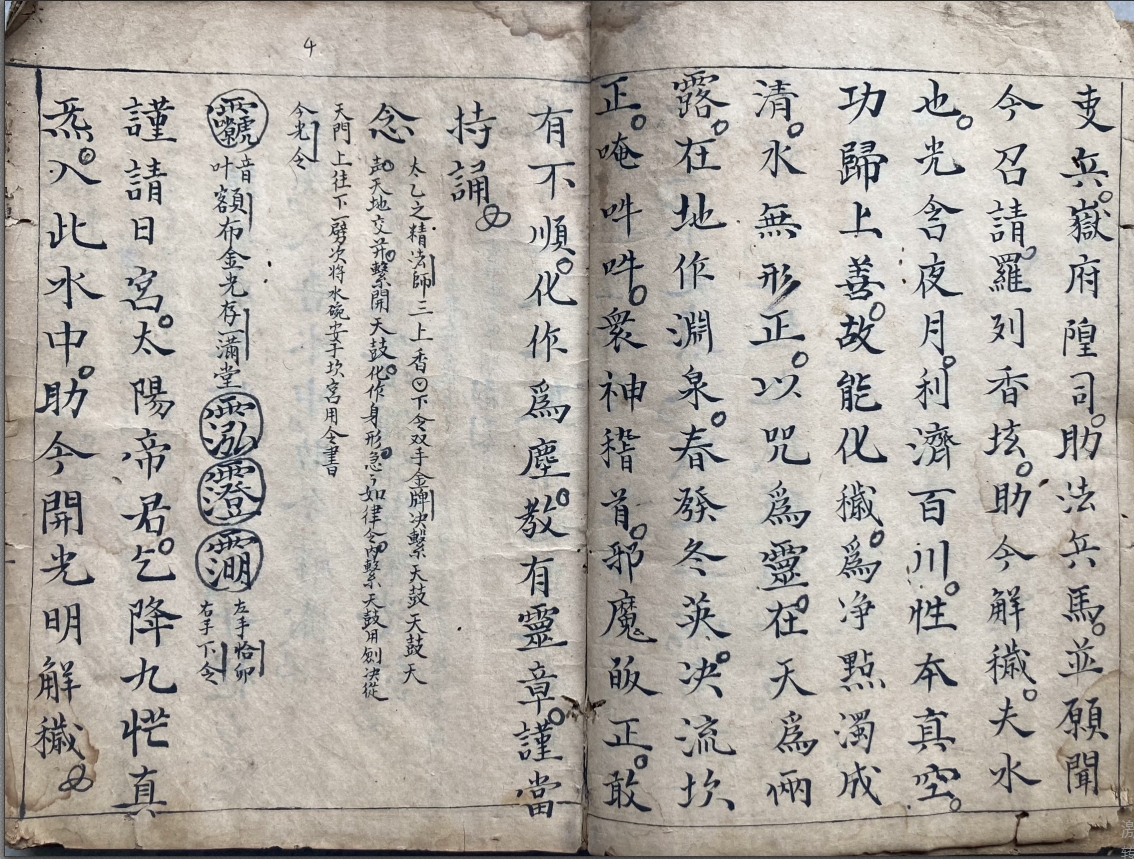 吏兵。嶽府隍司。助法兵馬。並願聞
今召請。羅列香垓。助今解穢。夫水
也。光含夜月。利濟百川。性本真空。
功歸上善。故能化穢。為净㸃濁成
清。水無形正。以咒為靈。在天為俩
露。在地作淵泉。春發冬英。决流坎
正。唵吽吽。衆神稽首。邪魔皈正。敢
有不順。化作為塵。教有靈章。謹當
持誦。
太乙之精法師三上香下令双手金牌决繫天鼓天鼓天
念 天地交并。繫開天鼓。化作身形。急々如律令。内繫天鼓用劍决從
天門上往下一劈次将水碗安于坎宮用令書
令光令
音叶額布金光存滿堂 左手恰卯右手下令
謹請日宮。太陽帝君。乞降九恾真
炁。入此水中。助今開光明解穢
4